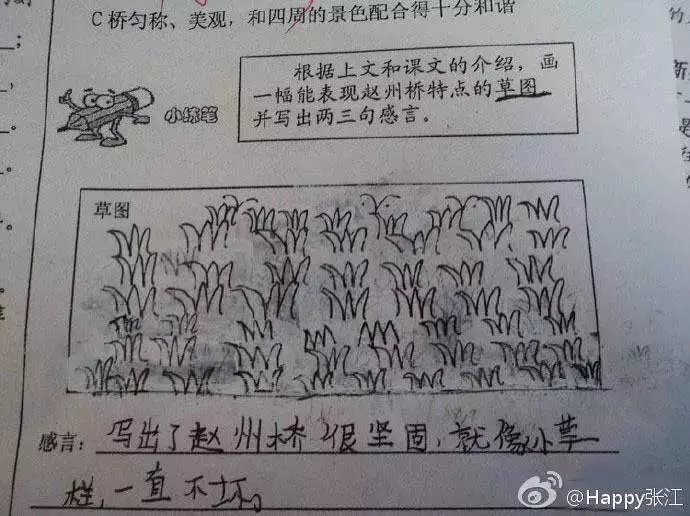 C 桥匀称、美观，和四周的景色配合得十分和谐
小练笔
根据上文和课文的介绍，画
一幅能表现赵州桥特点的草图，
并写出两三句感言。
草图
感言：写出了赵州桥很坚固，就像小草一
样，一直不坏。
@Happy张江